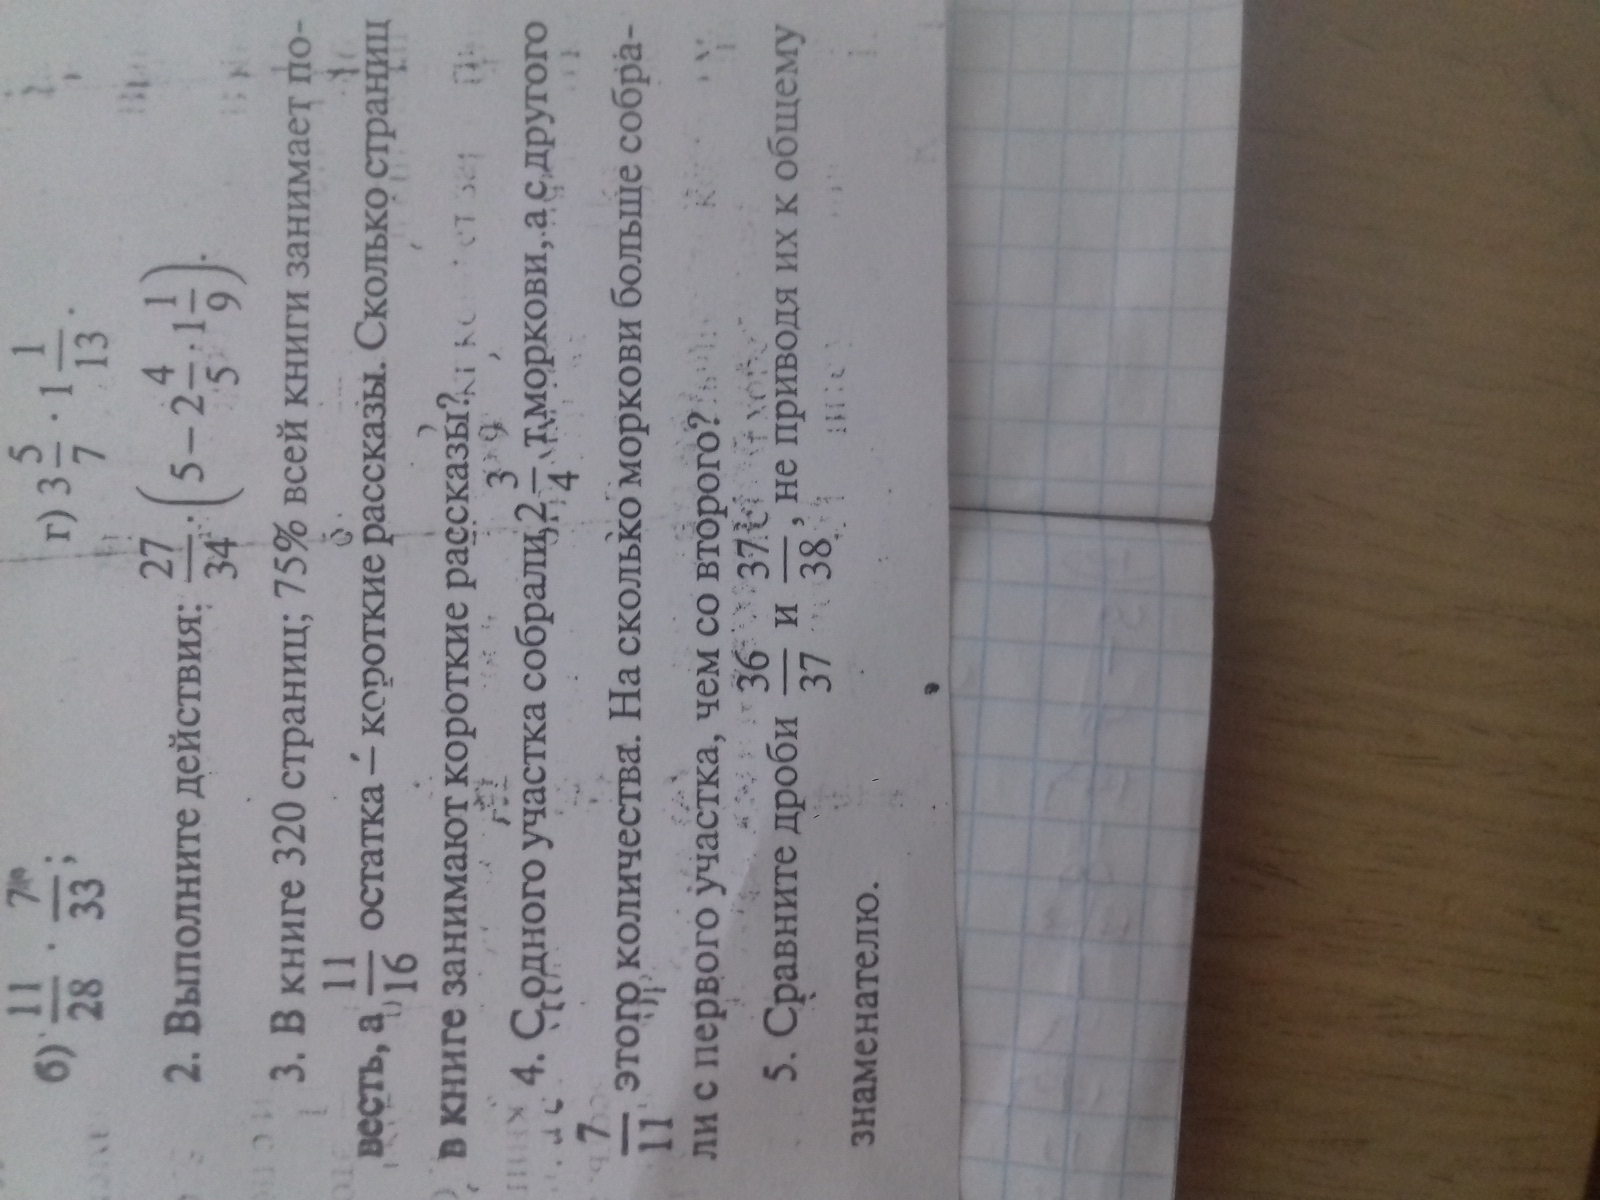 б) 11/28 · 7/33; г) 3 5/7 · 1 1/13.
2. Выполните действия: 27/34 · (5 − 2 4/5 · 1 1/9).
3. В книге 320 страниц; 75% всей книги занимает по-
весть, а 11/16 остатка – короткие рассказы. Сколько страниц
в книге занимают короткие рассказы?
4. С одного участка собрали 2 3/4 т моркови, а с другого
7/11 этого количества. На сколько моркови больше собра-
ли с первого участка, чем со второго?
5. Сравните дроби 36/37 и 37/38, не приводя их к общему
знаменателю.